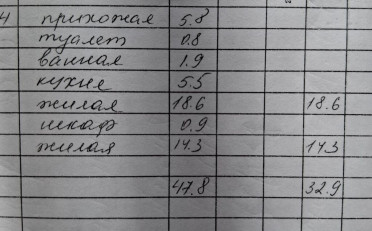 4 прихожая 5.8
туалет 0.8
ванная 1.9
кухня 5.5
жилая 18.6 18.6
шкаф 0.9
жилая 14.3 14.3
47.8 32.9